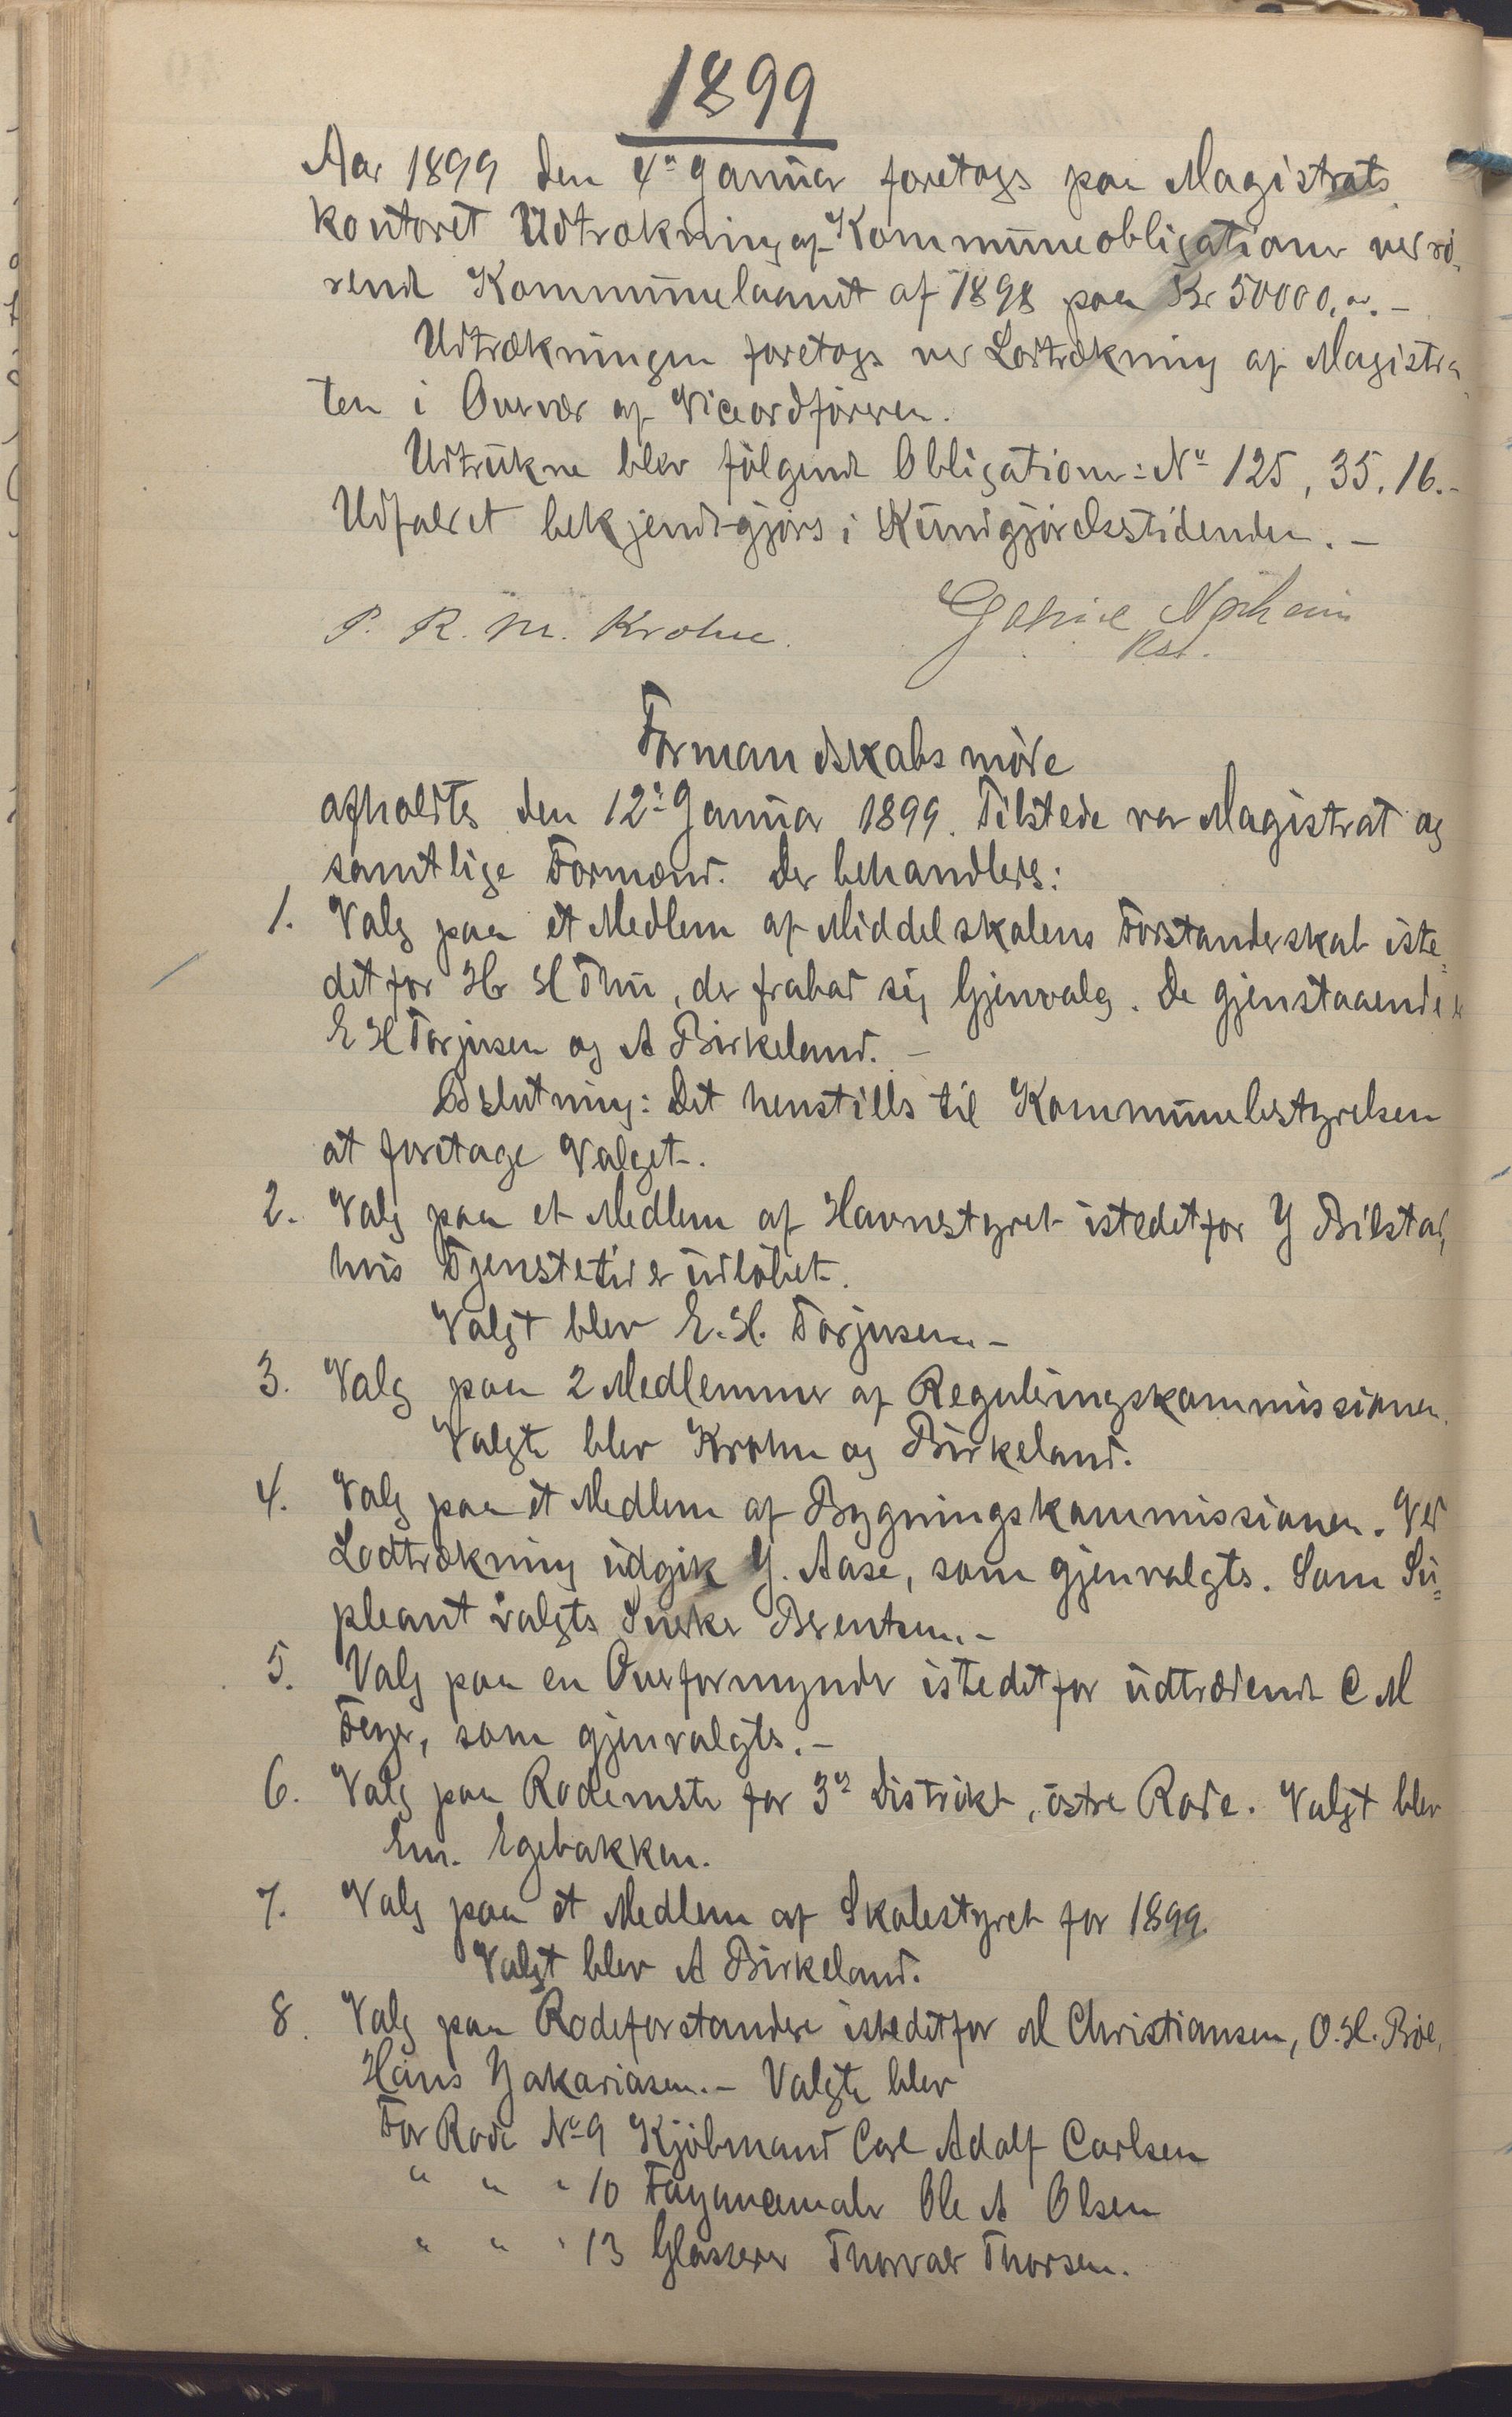 1899
Aar 1899 den 4de Januar foretoges paa Magistrats
kontoret Udtrækning af Kommuneobligationer vedrø-
rende Kommunelaanet af 1898 paa Kr 50000,00.-
Udtrækningen foretoges ved Lodtrækning af Magistra-
ten i Overvær af Viceordføreren.
Udtrukne blev følgende Obligationer: No 125, 35, 16.-
Udfaldet bekjendtgjøres i Kundgjørelsestidenden.-
P. R. M. Krohn.
Formandskabsmøde
afholdtes den 12te Januar 1899. Tilstede var Magistrat og
samtlige Formænd. Der behandledes:
1. Valg paa et Medlem af Middelskolens Forstanderskab iste-
detfor Hr H Thu, der frabad sig Gjenvalg. De gjenstaaende er
E H Torjusen og A Birkeland.-
Beslutning: Det henstilles til Kommunebestyrelsen
at foretage Valget.
2. Valg paa et Medlem af Havnestyret istedetfor J Bilstad,
hvis Tjenestetid er udløbet.
Valgt blev E. H. Torjusen.-
3. Valg paa 2 Medlemmer af Reguleringskommissionen.
Valgte blev Krohn og Birkeland.
4. Valg paa et Medlem af Bygningskommissionen. Ved
Lodtrækning udgik J. Aase, som gjenvalgtes. Som Su-
pleant valgtes Snedker Berentsen.-
5. Valg paa en Overformynder istedetfor udtrædende C M
Feyer, som gjenvalgtes.-
6. Valg paa Rodemster for 3die Distrikt, østre Rode. Valgt blev
Em. Egebakken.
7. Valg paa et Medlem af Skolestyret for 1899.
Valgt blev A Birkeland.
8. Valg paa Rodeforstandere istedetfor M Christiansen, O. H. Bøe,
Hans Zakariasen.- Valgte blev
For Rode No 9 Kjøbmand Carl Adolf Carlsen
" " " 10 Fayancemaler Ole A Olsen
" " " 13 Glasserer Thorvald Thorsen.